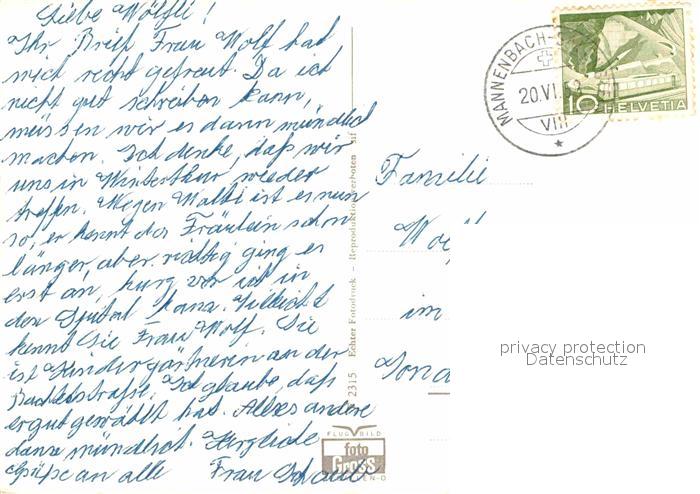 Liebe Wölfli!
Ihr Brief Frau Wolf hat
mich recht gefreut. Da ich
nicht gut schreiben kann,
müssen wir es dann mündlich
machen. Ich denke, daß wir
uns in Winterthur wieder
treffen. Wegen Walti ist es nun
so, er kennt das Fräulein schon
länger, aber richtig ging es
erst an, kurz vor ich in
den Spital kam. Villicht
kennt Sie Frau Wolf. Sie
ist Kindergärtnerin an der
Bachtelstraße. Ich glaube, daß
er gut gewählt hat. Alles andere
dann mündlich. Herzliche
Grüße an alle Frau Schaub
2315 Echter Fotodruck – Reproduktion verboten
FLUGBILD
foto
Gross
MANNENBACH-
20.VI.
VIII
10 HELVETIA
Familie
im
privacy protection
Datenschutz